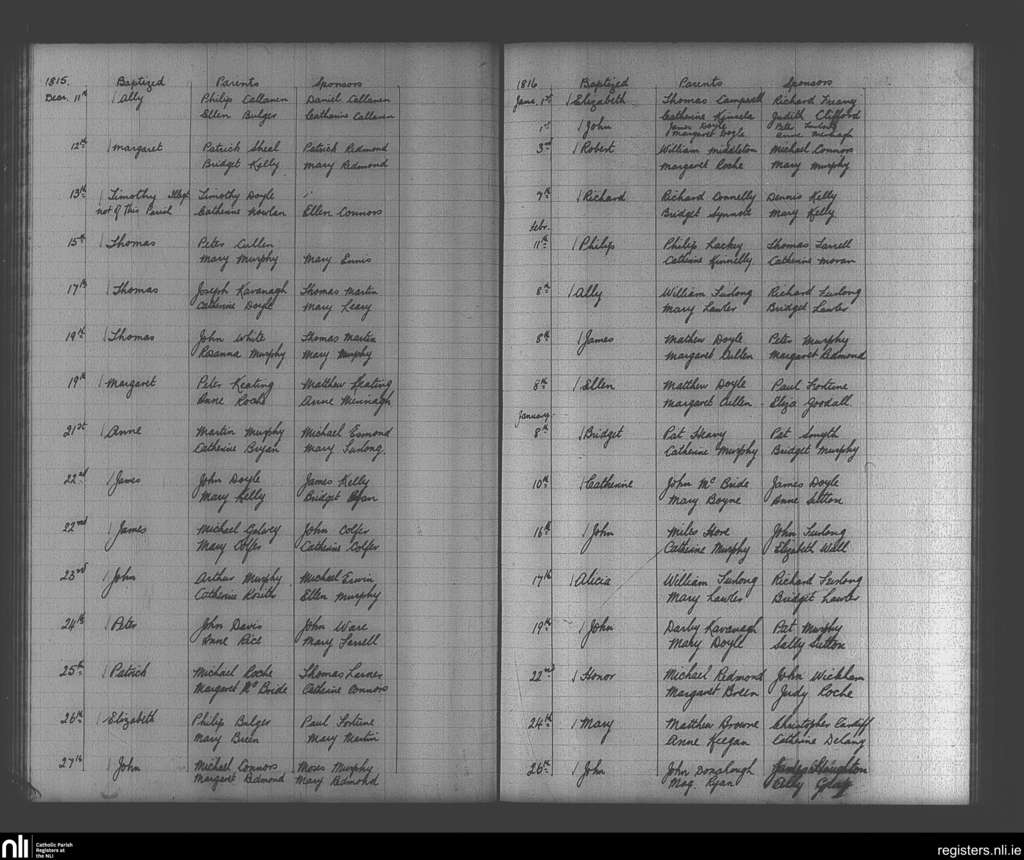 1815. Baptized Parents Sponsors
Decr. 11th Ally Philip Callanen Daniel Callanen
Ellen Bulger Catharine Callanen
12th Margaret Patrick Sheal Patrick Redmond
Bridget Kelly Mary Redmond
13th Timothy Illegt Timothy Doyle
not of this Parish Catherine Nowlan Ellen Connors
15th Thomas Peter Cullen
Mary Murphy Mary Ennis
17th Thomas Joseph Kavanagh Thomas Martin
Catherine Doyle Mary Leary
19th Thomas John White Thomas Martin
Rosanna Murphy Mary Murphy
19th Margaret Peter Keating Matthew Keating
Anne Roche Anne
21st Anne Martin Murphy Michael Esmond
Catherine Bryan Mary Furlong
22nd James John Doyle James Kelly
Mary Kelly Bridget Ryan
22nd James Michael Galvey John Colfer
Mary Colfer Catherine Colfer
23rd John Arthur Murphy Michael Erwin
Catherine Ellen Murphy
24th Peter John Davis John Ware
Anne Rice Mary Farrell
25th Patrick Michael Roche Thomas Larner
Margaret McBride Catherine Connors
26th Elizabeth Philip Bulger Paul Fortune
Mary Breen Mary Martin
27th John Michael Connors Moses Murphy
Margaret Redmond Mary Redmond
1816 Baptized Parents Sponsors
Jany. 1st Elizabeth Thomas Campbell Richard
Catherine Kinsela Judith Clifford
1st John James Doyle Peter Furlong
Margaret Doyle Annie
3rd Robert William Middleton Michael Connors
Margaret Roche Mary Murphy
7th Richard Richard Connelly Dennis Kelly
Bridget Synnott Mary Kelly
Febr.
11th Philip Philip Lackey Thomas Farrell
Catherine Kinnelly Catherine Moran
8th Ally William Furlong Richard Furlong
Mary Lawler Bridget Lawler
8th James Mathew Doyle Peter Murphy
Margaret Cullen Margaret Redmond
8th Ellen Matthew Doyle Paul Fortune
Margaret Cullen Eliza Goodall
January
8th Bridget Pat Heavy Pat Smyth
Catherine Murphy Bridget Murphy
10th Catherine John McBride James Doyle
Mary Boyne Anne Sutton
16th John Miles Hore John Furlong
Catherine Murphy Elizabeth Wall
17th Alicia William Furlong Richard Furlong
Mary Lawler Bridget Lawler
19th John Darby Kavanagh Pat Murphy
Mary Doyle Sally Sutton
22nd Honor Michael Redmond John Wickham
Margaret Breen Judy Roche
24th Mary Matthew Browne Christopher Cardiff
Anne Keegan Catherine Delany
26th John John Donalough
Mag. Ryan
nli Catholic Parish
Registers at
the NLI
registers.nli.ie